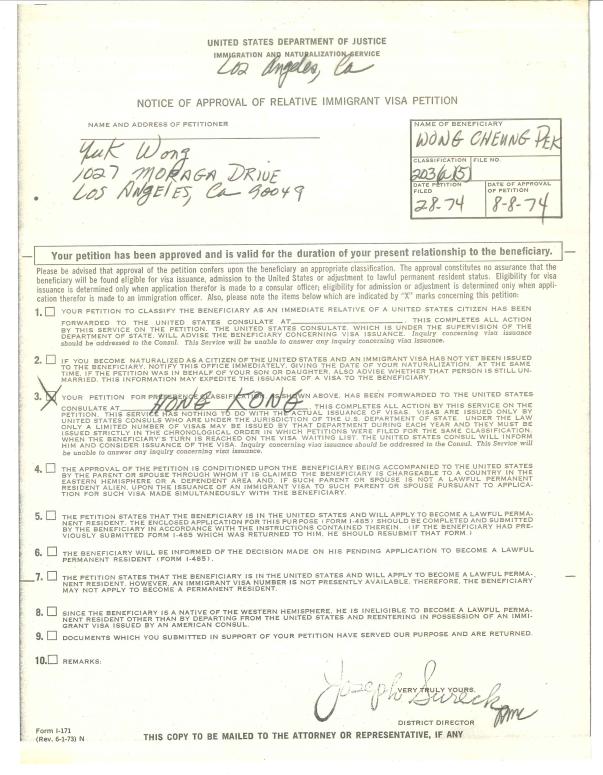 UNITED STATES DEPARTMENT OF JUSTICE
IMMIGRATION AND NATURALIZATION SERVICE
Los Angeles, Ca
NOTICE OF APPROVAL OF RELATIVE IMMIGRANT VISA PETITION
NAME AND ADDRESS OF PETITIONER
Yuk Wong
1027 MORAGA DRIVE
LOS ANGELES, Ca 90049
NAME OF BENEFICIARY
WONG CHEUNG PEK
CLASSIFICATION FILE NO.
203(a)(5)
DATE PETITION FILED DATE OF APPROVAL OF PETITION
28-74 8-8-74
Your petition has been approved and is valid for the duration of your present relationship to the beneficiary.
Please be advised that approval of the petition confers upon the beneficiary an appropriate classification. The approval constitutes no assurance that the
beneficiary will be found eligible for visa issuance, admission to the United States or adjustment to lawful permanent resident status. Eligibility for visa
issuance is determined only when application therefor is made to a consular officer; eligibility for admission or adjustment is determined only when appli-
cation therefor is made to an immigration officer. Also, please note the items below which are indicated by "X" marks concerning this petition:
1. YOUR PETITION TO CLASSIFY THE BENEFICIARY AS AN IMMEDIATE RELATIVE OF A UNITED STATES CITIZEN HAS BEEN
FORWARDED TO THE UNITED STATES CONSULATE AT THIS COMPLETES ALL ACTION
BY THIS SERVICE ON THE PETITION. THE UNITED STATES CONSULATE, WHICH IS UNDER THE SUPERVISION OF THE
DEPARTMENT OF STATE, WILL ADVISE THE BENEFICIARY CONCERNING VISA ISSUANCE. Inquiry concerning visa issuance
should be addressed to the Consul. This Service will be unable to answer any inquiry concerning visa issuance.
2. IF YOU BECOME NATURALIZED AS A CITIZEN OF THE UNITED STATES AND AN IMMIGRANT VISA HAS NOT YET BEEN ISSUED
TO THE BENEFICIARY, NOTIFY THIS OFFICE IMMEDIATELY, GIVING THE DATE OF YOUR NATURALIZATION. AT THE SAME
TIME, IF THE PETITION WAS IN BEHALF OF YOUR SON OR DAUGHTER, ALSO ADVISE WHETHER THAT PERSON IS STILL UN-
MARRIED. THIS INFORMATION MAY EXPEDITE THE ISSUANCE OF A VISA TO THE BENEFICIARY.
3. X YOUR PETITION FOR PREFERENCE CLASSIFICATION AS SHOWN ABOVE, HAS BEEN FORWARDED TO THE UNITED STATES
CONSULATE AT HONG KONG THIS COMPLETES ALL ACTION BY THIS SERVICE ON THE
PETITION. THIS SERVICE HAS NOTHING TO DO WITH THE ACTUAL ISSUANCE OF VISAS. VISAS ARE ISSUED ONLY BY
UNITED STATES CONSULS WHO ARE UNDER THE JURISDICTION OF THE U.S. DEPARTMENT OF STATE. UNDER THE LAW
ONLY A LIMITED NUMBER OF VISAS MAY BE ISSUED BY THAT DEPARTMENT DURING EACH YEAR AND THEY MUST BE
ISSUED STRICTLY IN THE CHRONOLOGICAL ORDER IN WHICH PETITIONS WERE FILED FOR THE SAME CLASSIFICATION.
WHEN THE BENEFICIARY'S TURN IS REACHED ON THE VISA WAITING LIST, THE UNITED STATES CONSUL WILL INFORM
HIM AND CONSIDER ISSUANCE OF THE VISA. Inquiry concerning visa issuance should be addressed to the Consul. This Service will
be unable to answer any inquiry concerning visa issuance.
4. THE APPROVAL OF THE PETITION IS CONDITIONED UPON THE BENEFICIARY BEING ACCOMPANIED TO THE UNITED STATES
BY THE PARENT OR SPOUSE THROUGH WHOM IT IS CLAIMED THE BENEFICIARY IS CHARGEABLE TO A COUNTRY IN THE
EASTERN HEMISPHERE OR A DEPENDENT AREA AND, IF SUCH PARENT OR SPOUSE IS NOT A LAWFUL PERMANENT
RESIDENT ALIEN, UPON THE ISSUANCE OF AN IMMIGRANT VISA TO SUCH PARENT OR SPOUSE PURSUANT TO APPLICA-
TION FOR SUCH VISA MADE SIMULTANEOUSLY WITH THE BENEFICIARY.
5. THE PETITION STATES THAT THE BENEFICIARY IS IN THE UNITED STATES AND WILL APPLY TO BECOME A LAWFUL PERMA-
NENT RESIDENT. THE ENCLOSED APPLICATION FOR THIS PURPOSE (FORM I-485) SHOULD BE COMPLETED AND SUBMITTED
BY THE BENEFICIARY IN ACCORDANCE WITH THE INSTRUCTIONS CONTAINED THEREIN. (IF THE BENEFICIARY HAD PRE-
VIOUSLY SUBMITTED FORM I-485 WHICH WAS RETURNED TO HIM, HE SHOULD RESUBMIT THAT FORM.)
6. THE BENEFICIARY WILL BE INFORMED OF THE DECISION MADE ON HIS PENDING APPLICATION TO BECOME A LAWFUL
PERMANENT RESIDENT (FORM I-485).
7. THE PETITION STATES THAT THE BENEFICIARY IS IN THE UNITED STATES AND WILL APPLY TO BECOME A LAWFUL PERMA-
NENT RESIDENT. HOWEVER, AN IMMIGRANT VISA NUMBER IS NOT PRESENTLY AVAILABLE. THEREFORE, THE BENEFICIARY
MAY NOT APPLY TO BECOME A PERMANENT RESIDENT.
8. SINCE THE BENEFICIARY IS A NATIVE OF THE WESTERN HEMISPHERE, HE IS INELIGIBLE TO BECOME A LAWFUL PERMA-
NENT RESIDENT OTHER THAN BY DEPARTING FROM THE UNITED STATES AND REENTERING IN POSSESSION OF AN IMMI-
GRANT VISA ISSUED BY AN AMERICAN CONSUL.
9. DOCUMENTS WHICH YOU SUBMITTED IN SUPPORT OF YOUR PETITION HAVE SERVED OUR PURPOSE AND ARE RETURNED.
10. REMARKS:
VERY TRULY YOURS,
Joseph Sureck
DISTRICT DIRECTOR
Form I-171
(Rev. 6-1-73) N
THIS COPY TO BE MAILED TO THE ATTORNEY OR REPRESENTATIVE, IF ANY